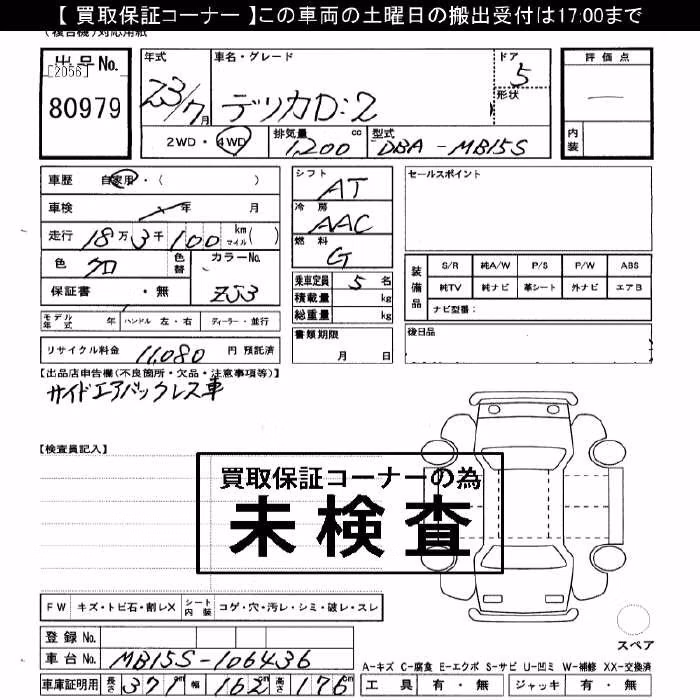 【 買取保証コーナー 】この車両の土曜日の搬出受付は17:00まで
(複合機)対応用紙
出品No.
[2056]
80979
年式
23/7月
車名・グレード
デリカD:2
ドア
5
形状
2WD・4WD
排気量
1,200 cc
型式
DBA - MB15S
評価点
内装
車歴 自家用・( )
車検 年 月
走行 18万3千100 km マイル( )
色 クロ
色替
カラーNo.
ZJ3
保証書 ・無
モデル年式 年
ハンドル 左・右
ディーラー・並行
リサイクル料金 11,080 円 預託済
シフト
AT
冷房
AAC
燃料
G
乗車定員 5 名
積載量 kg
総重量 kg
書類期限
月 日
セールスポイント
装備品
S/R 純A/W P/S P/W ABS
純TV 純ナビ 革シート 外ナビ エアB
ナビ型番:
後日品
【出品店申告欄(不良箇所・欠品・注意事項等)】
サイドエアバックレス車
【検査員記入】
買取保証コーナーの為
未検査
FW キズ・トビ石・割レX
シート内装 コゲ・穴・汚レ・シミ・破レ・スレ
登録No.
車台No. MB15S-106436
車庫証明用 長さ 371cm 幅 162cm 高さ 176cm
スペア
A-キズ C-腐食 E-エクボ S-サビ U-凹ミ W-補修 XX-交換済
工具 有・無 ジャッキ 有・無